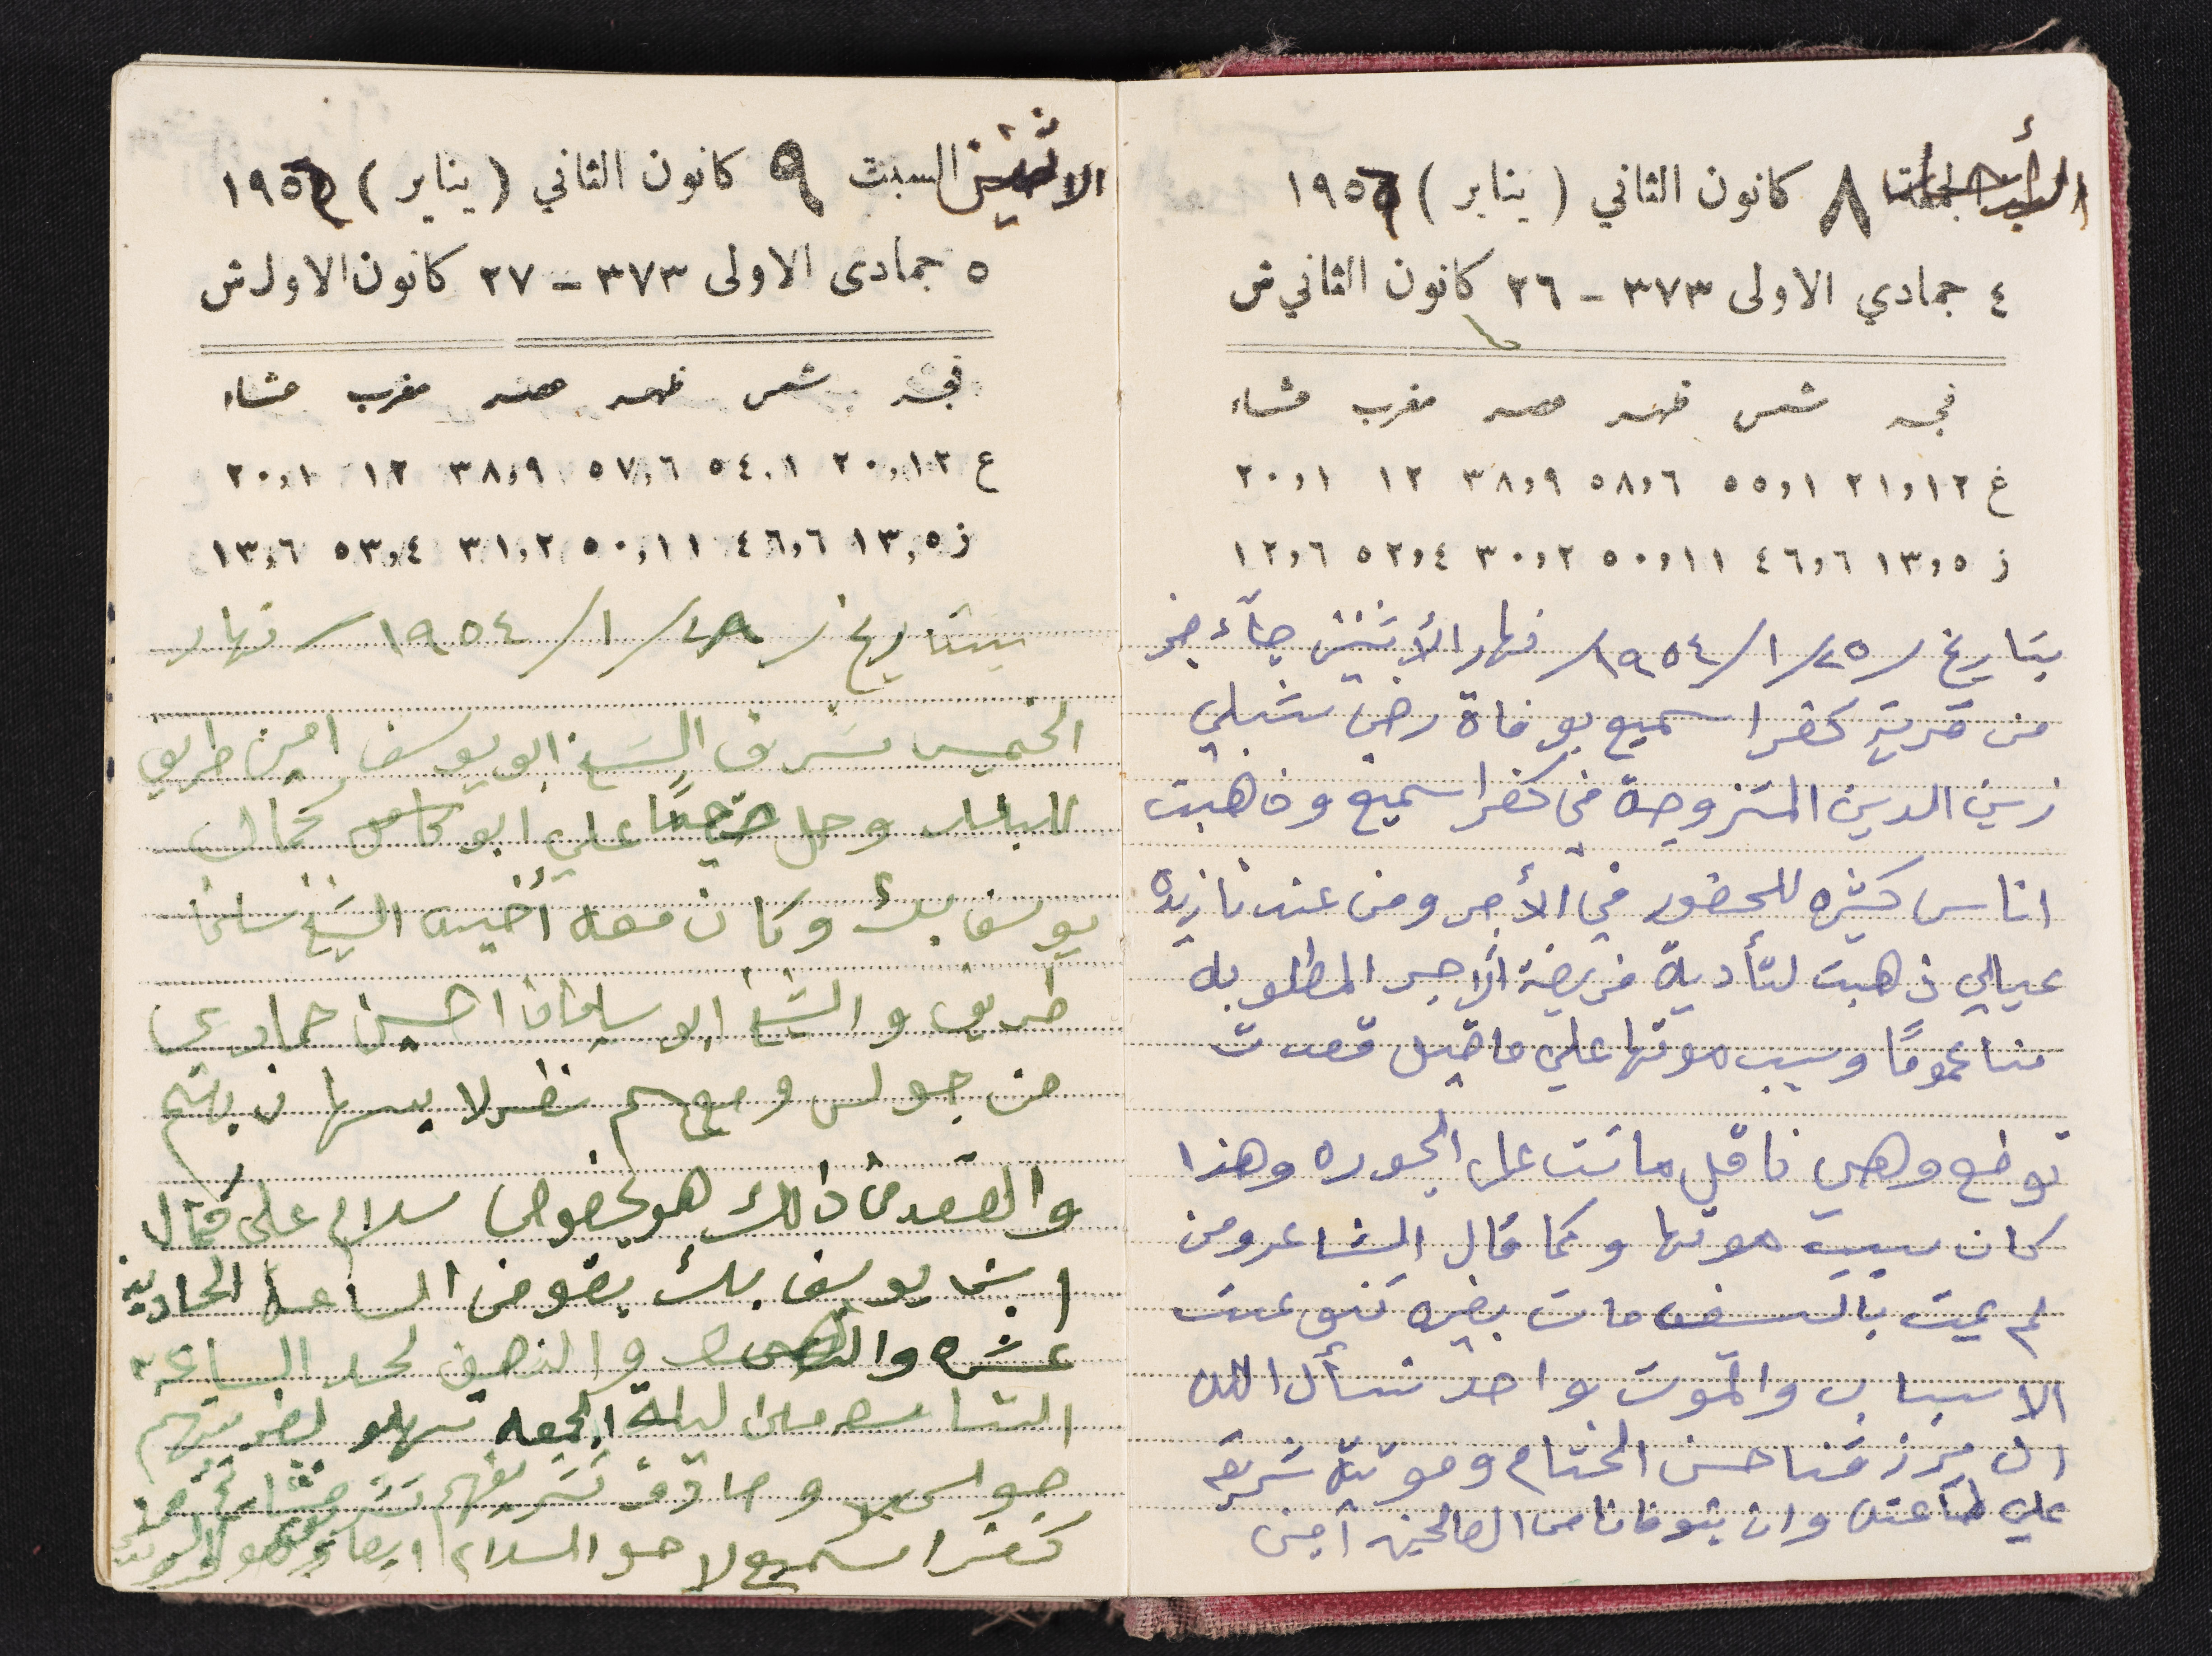 ٨ كانون الثاني ( يناير ) ١٩٥
٤ جمادي الاولى ٣٧٣ - ٢٦ كانون الثاني ش
فجر شمس ظهر عصر مغرب عشاء
غ ١٢,٢١ ١,٥٥ ٦,٥٨ ٩,٣٨ ١٢ ١,٢٠
ز ٥,١٣ ٦,٤٦ ١١,٥٠ ٢,٣٠ ٤,٥٢ ٦,١٢
بتاريخ /٢٥/١/١٩٥٤/ نهار الأثنين جآء خبر
من قرية كفر اسميع بوفاة رضى شبلي
زين الدين المتزوجة في كفر اسميع وذاهبت
اناس كثيره للحضور في الأجر ومن عندنا زيدة
عيالي ذهبت لتأدية فريضة الاجر المطلوبه
منا عمومًا وسبب موتها على ما قيل قعدت
توضع وهي ماتت على الجوره وهذا
كان سبب موتها وكما قال الشاعر ومن
لم يمت بالسف مات بغيره تنوعت
الاسباب والموت واحد نسأل الله
ان يرزقنا حسن الختام وموتة شريفه
على طاعته وان يتوفانا من الصالحين آمين
الاثنين السبت ٩ كانون الثاني ( يناير ) ١٩٥
٥ جمادى الاولى ٣٧٣ - ٢٧ كانون الاول ش
فجر شمس ظهر عصر مغرب عشاء
ع ١٢,٢٠ ١,٥٤ ٦,٥٧ ٩,٣٨ ١٢ ١,٢٠
ز ٥,١٣ ٦,٤٦ ١١,٥٠ ٢,٣١ ٤,٥٣ ٦,١٣
بتاريخ /٢٨/١/١٩٥٤/ نهار
الخميس شرف الشيخ ابو يوسف امين طريف
للبلد وحل علي ابو كمال
يوسف بك وكان معه أخيه الشيخ سلمان
طريف والشيخ ابو سلمان احسين حمادي
من جولس
والقصد من ذالك هو بخصوص سلام على كمال
ابن يوسف بك بقو من الساعة الحادية
عشره والنصف لحد الساعه
ليلة الجمعه سهلو لقريتهم
جولس وصادف تشريفهم
كفر اسميع السلام ايضا